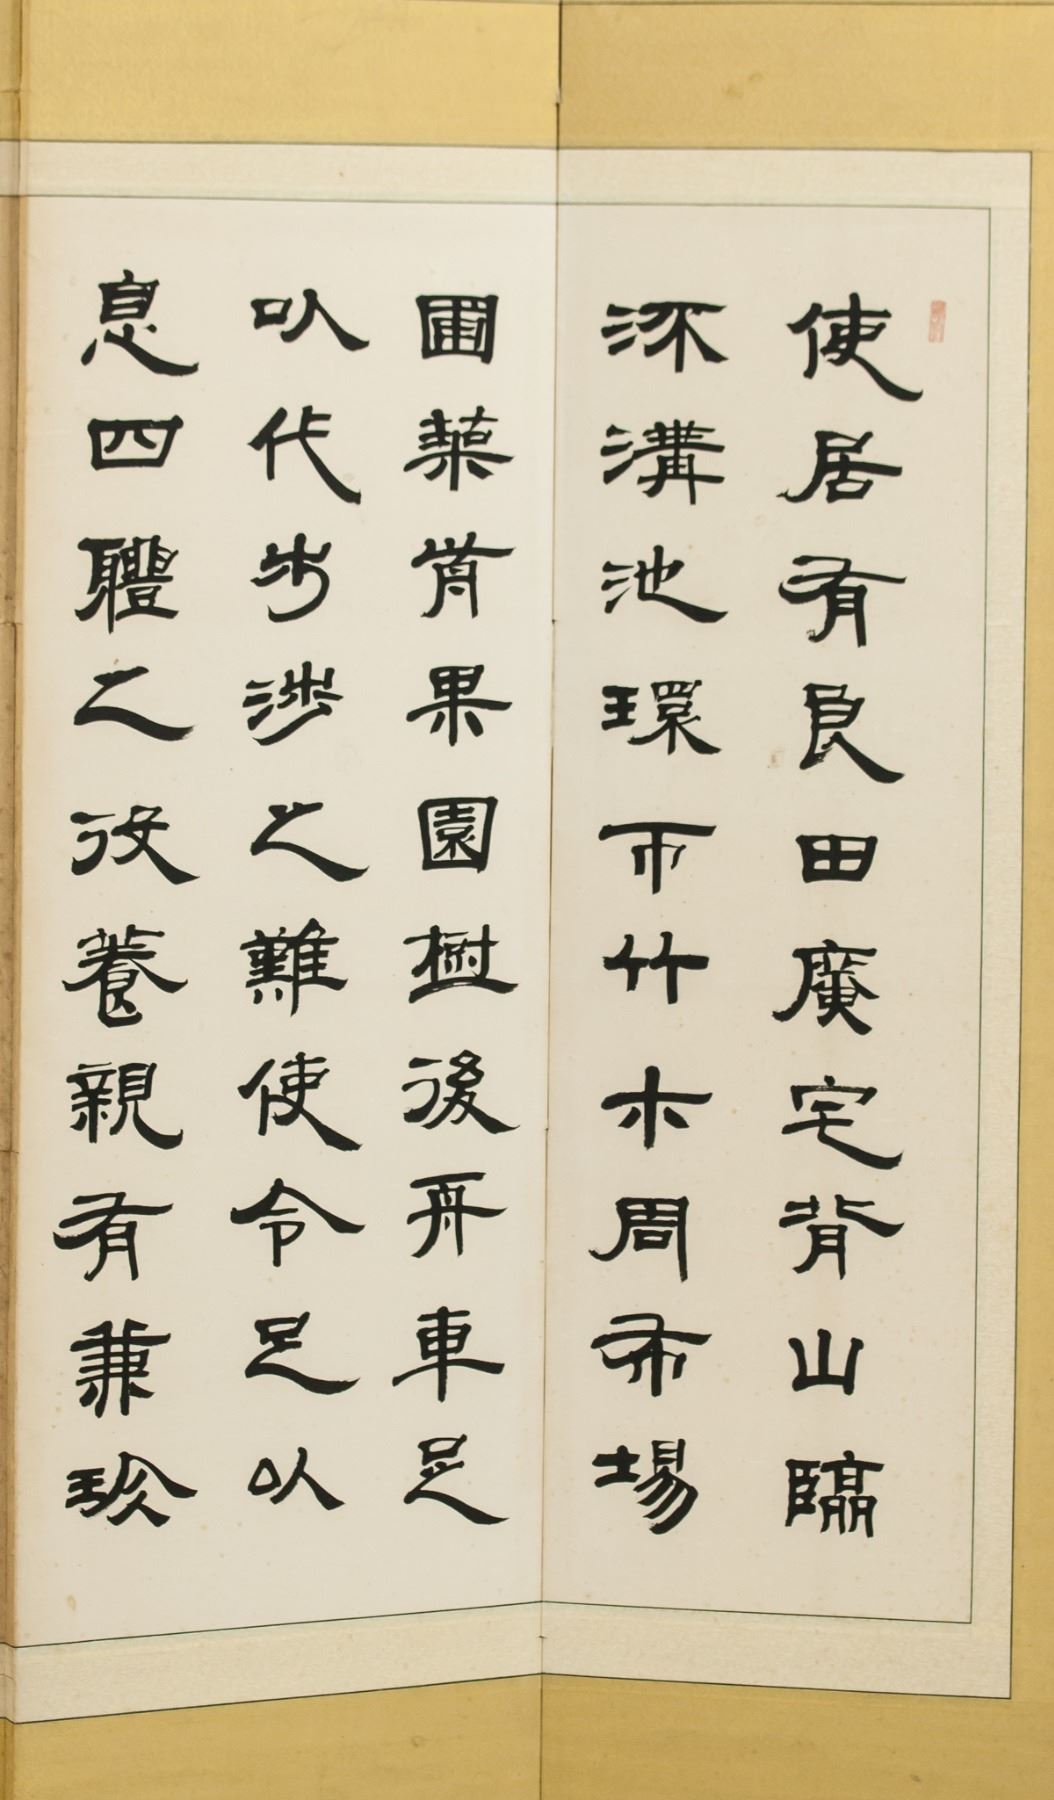 使居有良田廣宅背山臨
流溝池環帀竹木周布場
圃築前果園樹後舟車足
以代步涉之難使令足以
息四體之役養親有兼珍